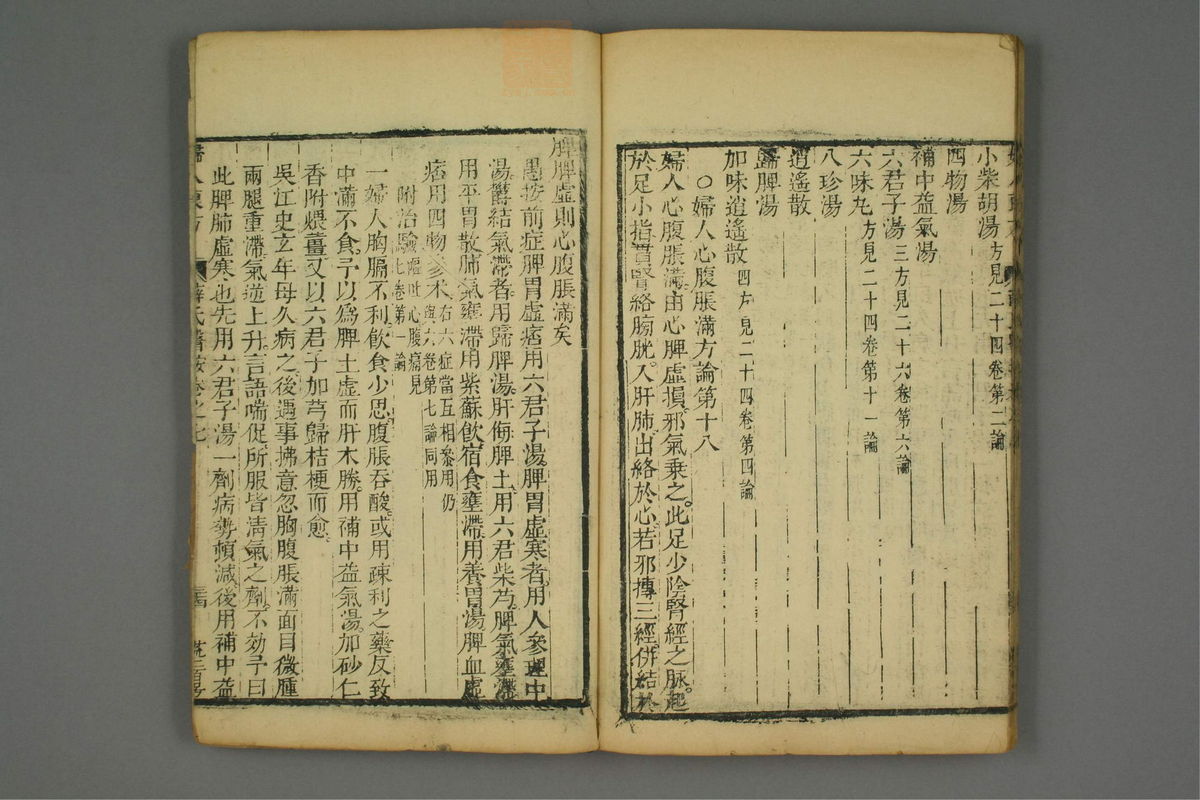 小柴胡湯方見二十四卷第二論
四物湯
補中益氣湯
六君子湯三方見二十六卷第六論
六味丸方見二十四卷第十一論
八珍湯
逍遙散
歸脾湯
加味逍遙散四方見二十四卷第四論
○婦人心腹脹滿方論第十八
婦人心腹脹滿由心脾虛損邪氣乘之此足少陰腎經之脉起
於足小指貫腎絡膀胱入肝肺出絡於心若邪搏三經併結於
脾脾虛則心腹脹滿矣
愚按前症脾胃虛痞用六君子湯脾胃虛寒者用人參理中
湯鬱結氣滯者用歸脾湯肝侮脾土用六君柴芍脾氣壅滯
用平胃散肺氣壅滯用紫蘇飲宿食壅滯用養胃湯脾血虛
痞用四物參术右六症當互相參用仍
與六卷第七論同用
附治驗嘔吐心腹痛見
七卷第一論
一婦人胸膈不利飲食少思腹脹吞酸或用疎利之藥反致
中滿不食予以爲脾土虛而肝木勝用補中益氣湯加砂仁
香附煨薑又以六君子加芎歸桔梗而愈
吳江史玄年母久病之後遇事拂意忽胸腹脹滿面目微腫
兩腿重滯氣逆上升言語喘促所服皆清氣之劑不効予曰
此脾肺虛寒也先用六君子湯一劑病勢頓減後用補中益
薛氏醫按卷之七